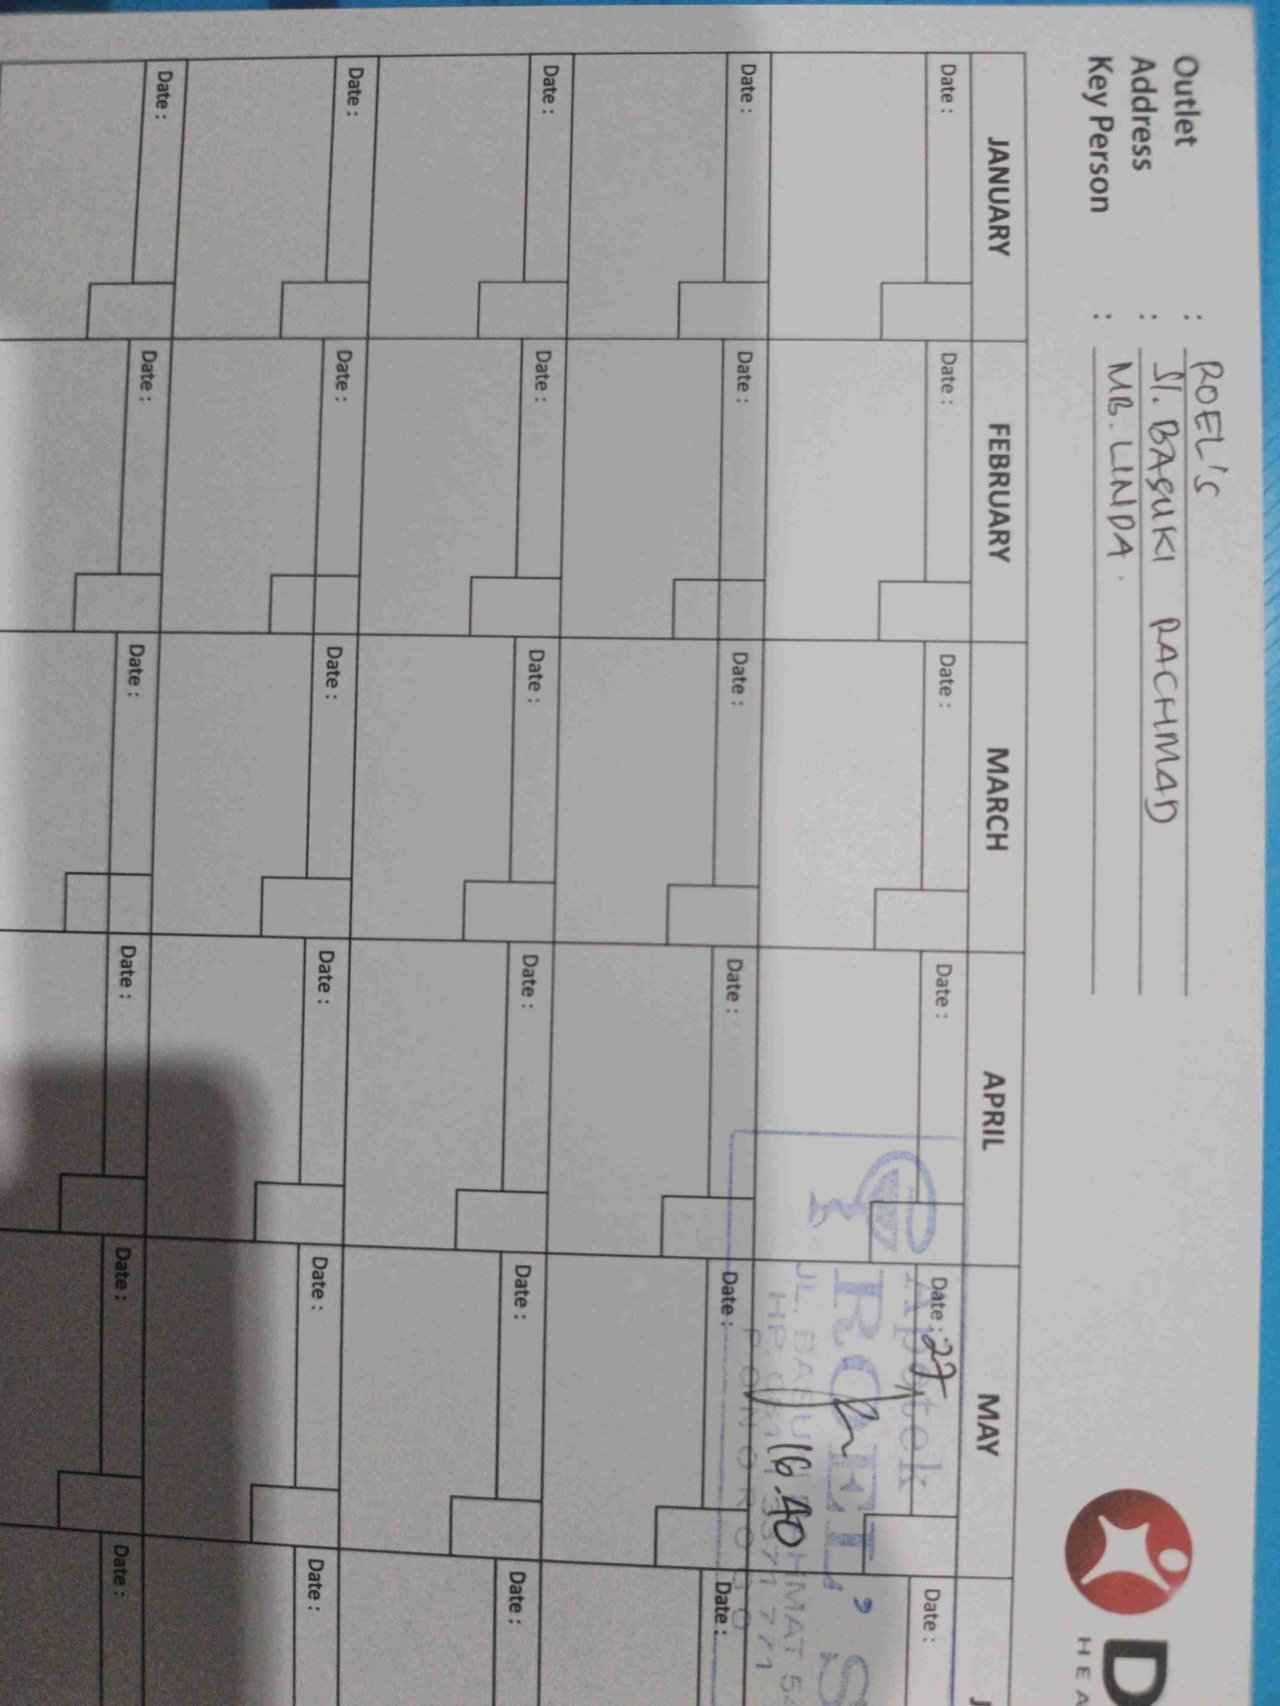 Outlet : ROEL'S
Address : Jl. BASUKI RACHMAD
Key Person : MB. LINDA.
D
HEA
JANUARY FEBRUARY MARCH APRIL MAY J
Date : Date : Date : Date : Date : 27 Date :
Apotek
ROEL'S
16.40
Date : Date : Date : Date : Date : Date :
Date : Date : Date : Date : Date : Date :
Date : Date : Date : Date : Date : Date :
Date : Date : Date : Date : Date : Date :